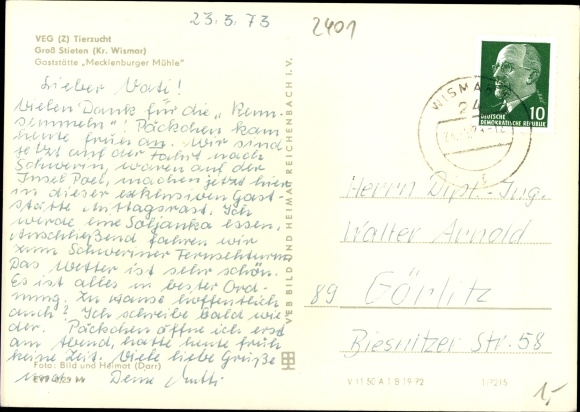 23.5.73
2401
VEG (Z) Tierzucht
Groß Stieten (Kr. Wismar)
Gaststätte „Mecklenburger Mühle"
Lieber Vati!
Vielen Dank für die „Renn-
semmeln". Päckchen kam
heute früh an. Wir sind
jetzt auf der Fahrt nach
Schwerin, waren auf der
Insel Poel, machen jetzt hier
in dieser exklusiven Gast-
stätte Mittagsrast. Ich
werde eine Soljanka essen.
Anschließend fahren wir
zum Schweriner Fernsehturm.
Das Wetter ist sehr schön.
Es ist alles in bester Ord-
nung. Zu Hause hoffentlich
auch? Ich schreibe bald wie
der. Päckchen öffne ich erst
am Abend, hatte heute früh
keine Zeit. Viele liebe Grüße
Deine Mutti
Foto: Bild und Heimat (Darr)
VEB BILD UND HEIMAT REICHENBACH I. V.
WISMAR
24
DEUTSCHE
DEMOKRATISCHE REPUBLIK
10
Herrn Dipl.-Ing.
Walter Arnold
89 Görlitz
Biesnitzer Str. 58
V 11 50 A 1 B 19 72
1,-